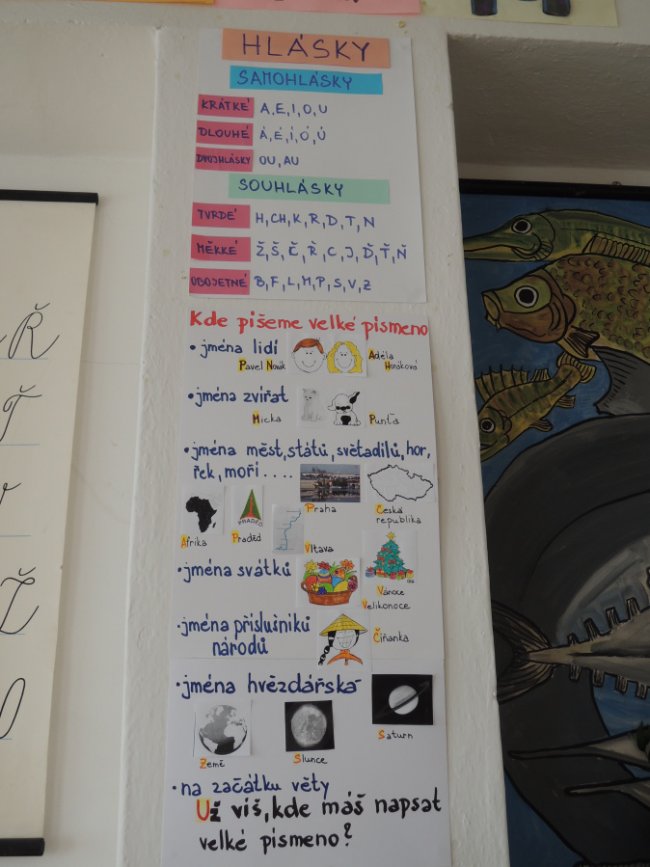 HLÁSKY
SAMOHLÁSKY
KRÁTKÉ A, E, I, O, U
DLOUHÉ Á, É, Í, Ó, Ú
DVOJHLÁSKY OU, AU
SOUHLÁSKY
TVRDÉ H, CH, K, R, D, T, N
MĚKKÉ Ž, Š, Č, Ř, C, J, Ď, Ť, Ň
OBOJETNÉ B, F, L, M, P, S, V, Z
Kde píšeme velké písmeno
• jména lidí
Pavel Novák
Adéla Horáková
• jména zvířat
Micka
Punťa
• jména měst, států, světadílů, hor,
řek, moří . . . .
Praha
Česká republika
Afrika
PRADĚD
Praděd
Vltava
• jména svátků
Vánoce
Velikonoce
• jména příslušníků
národů
Číňanka
• jména hvězdářská
Země
Slunce
Saturn
• na začátku věty
Už víš, kde máš napsat
velké písmeno?
Ř
Ť
Ž